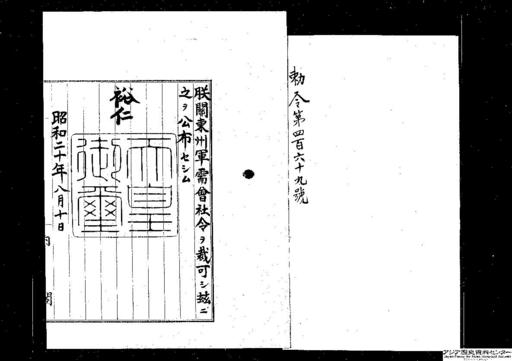 勅令第四百六十九號
朕關東州軍需會社令ヲ裁可シ玆ニ
之ヲ公布セシム
裕仁
天皇
御璽
昭和二十年八月十日
内閣
アジア歴史資料センター
Japan Center for Asian Historical Records